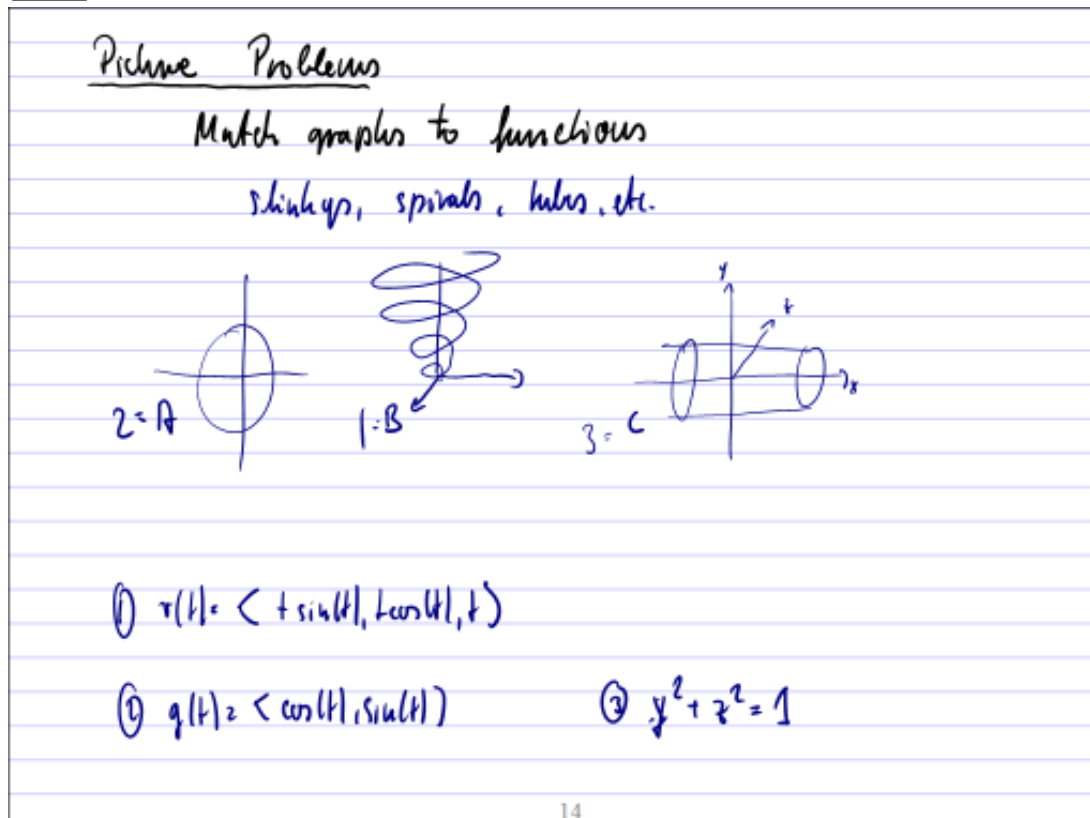 Picture Problems
Match graphs to functions
slinkys, spirals, tubes, etc.
y
t
x
2 = A
1 = B
3 = C
① r(t) = < t sin(t), t cos(t), t >
② g(t) = < cos(t), sin(t) >
③ y² + z² = 1
14